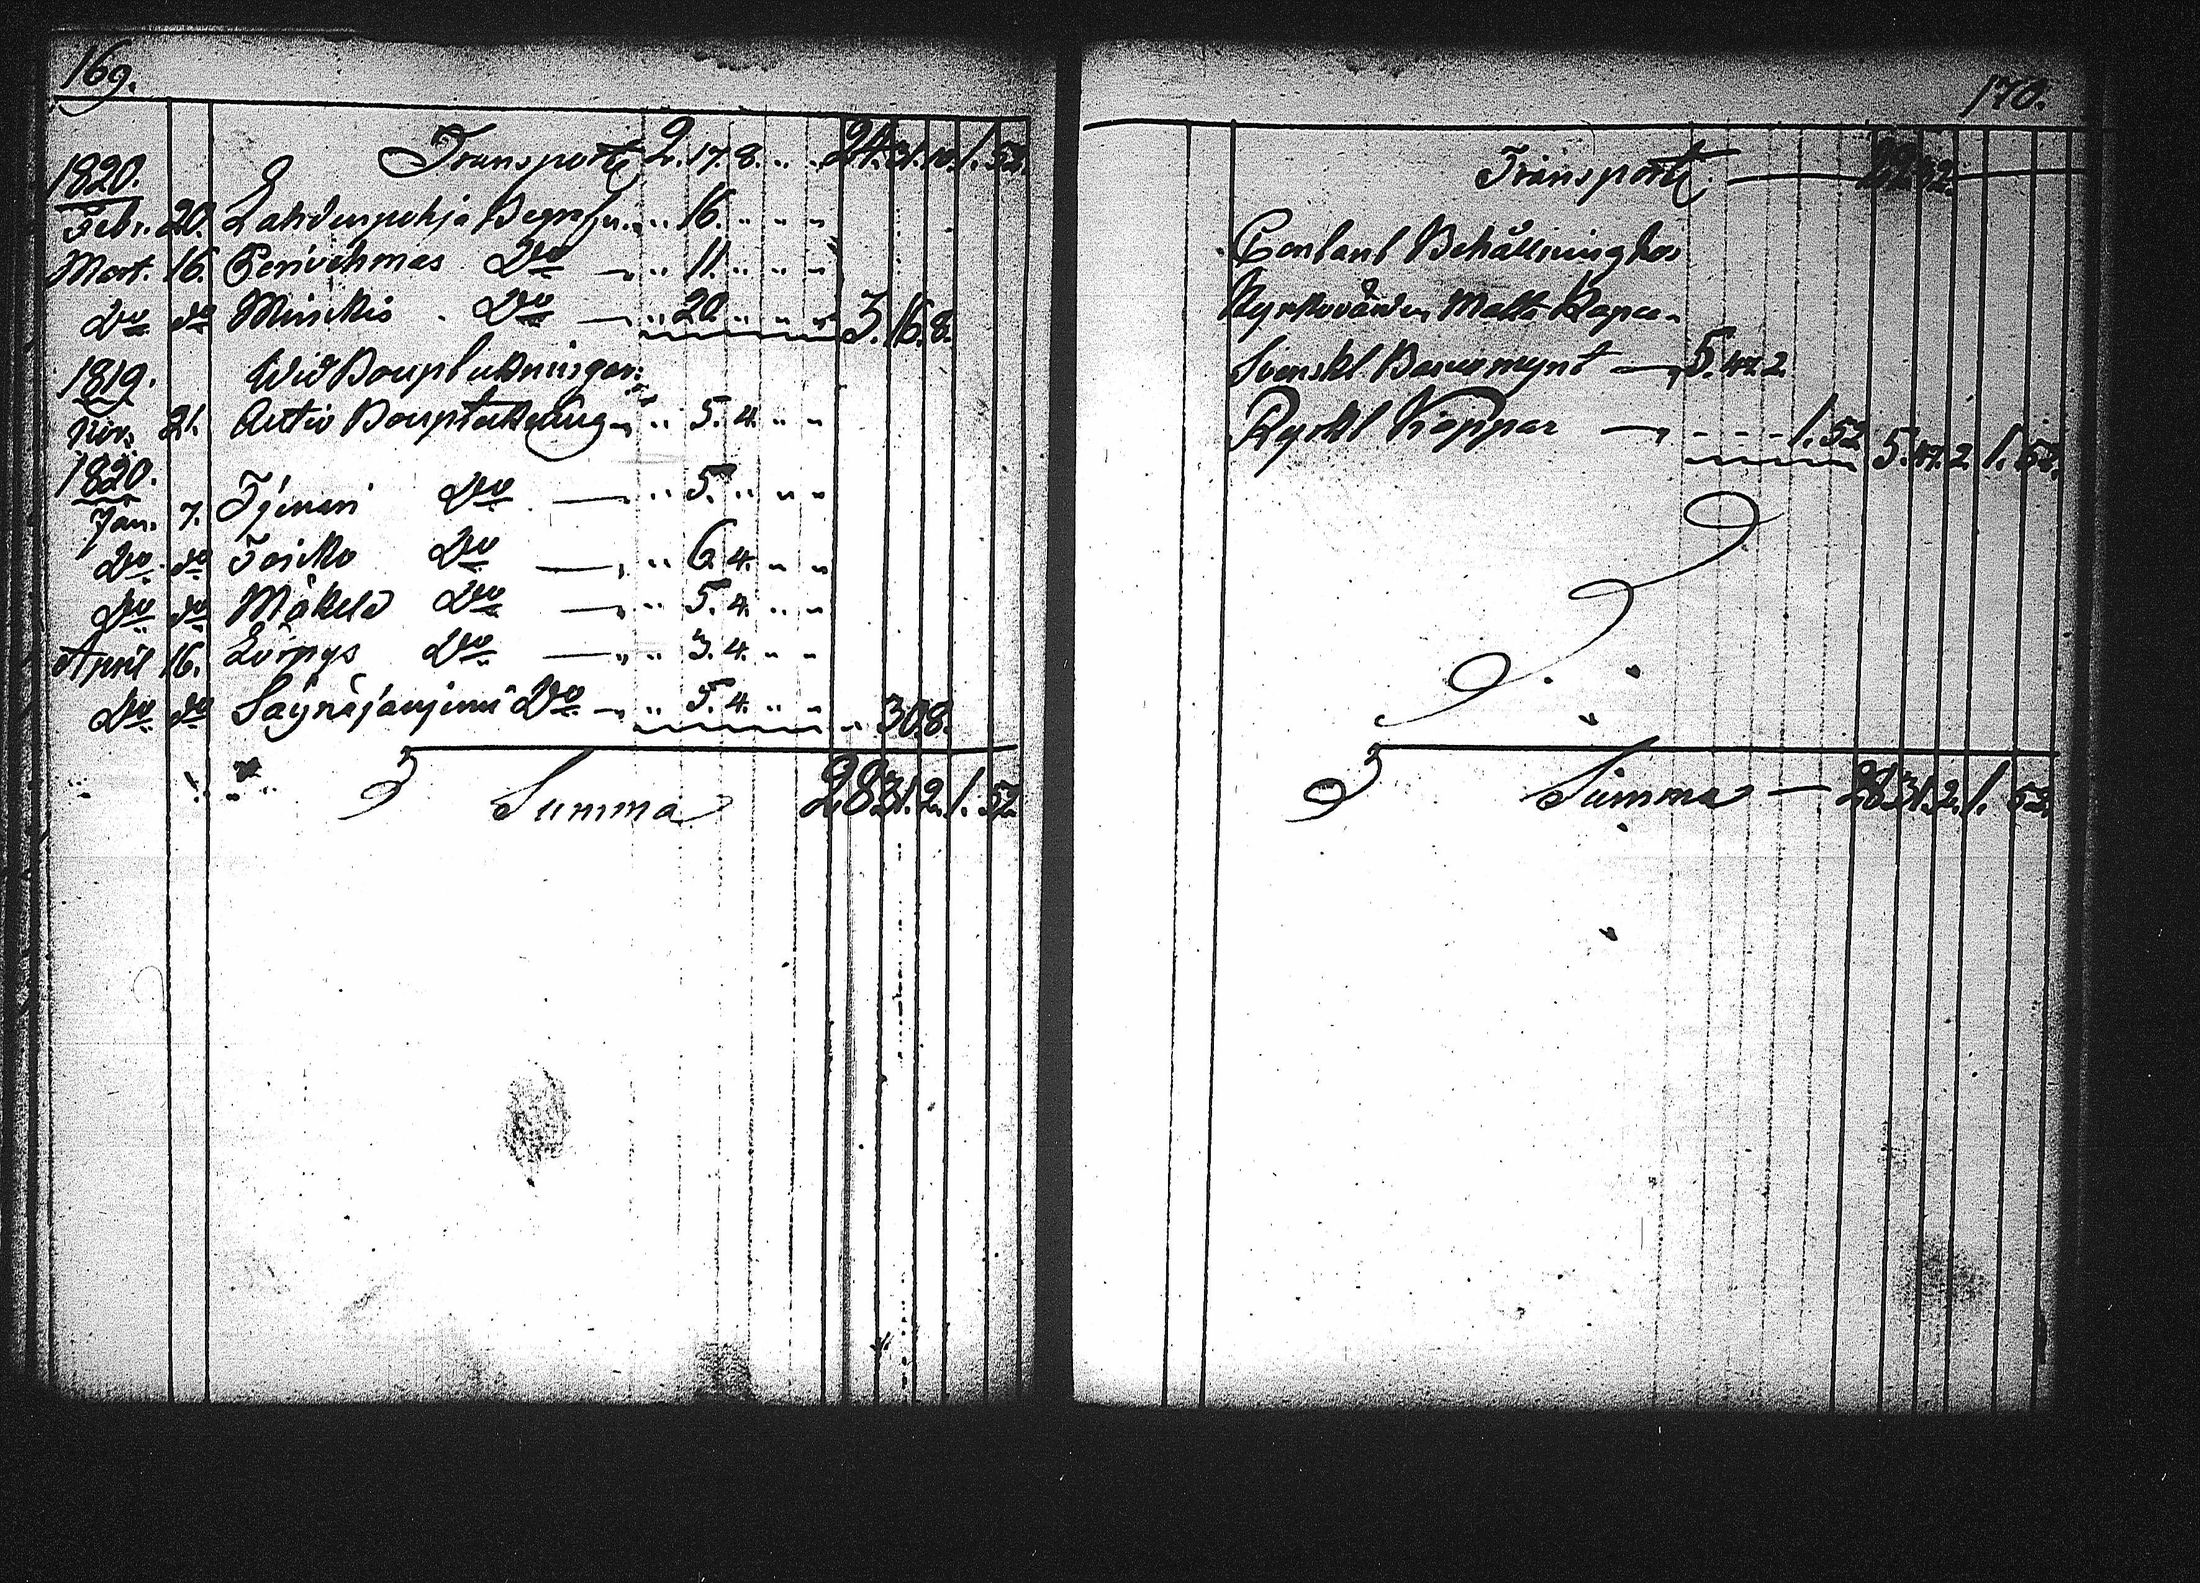 169.
Transport 2. 17. 8. " " 24. 31. 10. 1. 52.
1820.
Febr. 20. Lahdenpohja Begrafn. " 16. " " "
Mart. 16. Perivehmas Do — " 11. " " "
Do do Minckis Do — " 20. " " " 3. 16. 8.
1819. Wid Bouptekningar:
Nov. 21. Autio Bouptekning " 5. 4. " "
1820.
Jan. 7. Do — " 5. " " "
Do do Toicko Do — " 6. 4. " "
Do do Mäkelä Do — " 5. 4. " "
April 16. Do — " 3. 4. " "
Do do Säynäjänjemi Do — " 5. 4. " " " 30. 8.
Summa 28. 31. 2. 1. 52.
170.
Transport — 22. 32.
Contant Behållning hos
Kyrkovärden Matts
Svenskt Bancomynt — 5. 47. 2
Ryskt Koppar — - - - 1. 52 5. 47. 2. 1. 52.
Summa — 28. 31. 2. 1. 52.